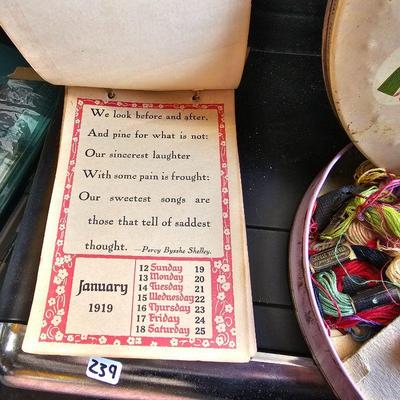 We look before and after,
And pine for what is not:
Our sincerest laughter
With some pain is frought:
Our sweetest songs are
those that tell of saddest
thought. —Percy Bysshe Shelley.
January
1919
12 Sunday 19
13 Monday 20
14 Tuesday 21
15 Wednesday 22
16 Thursday 23
17 Friday 24
18 Saturday 25
239